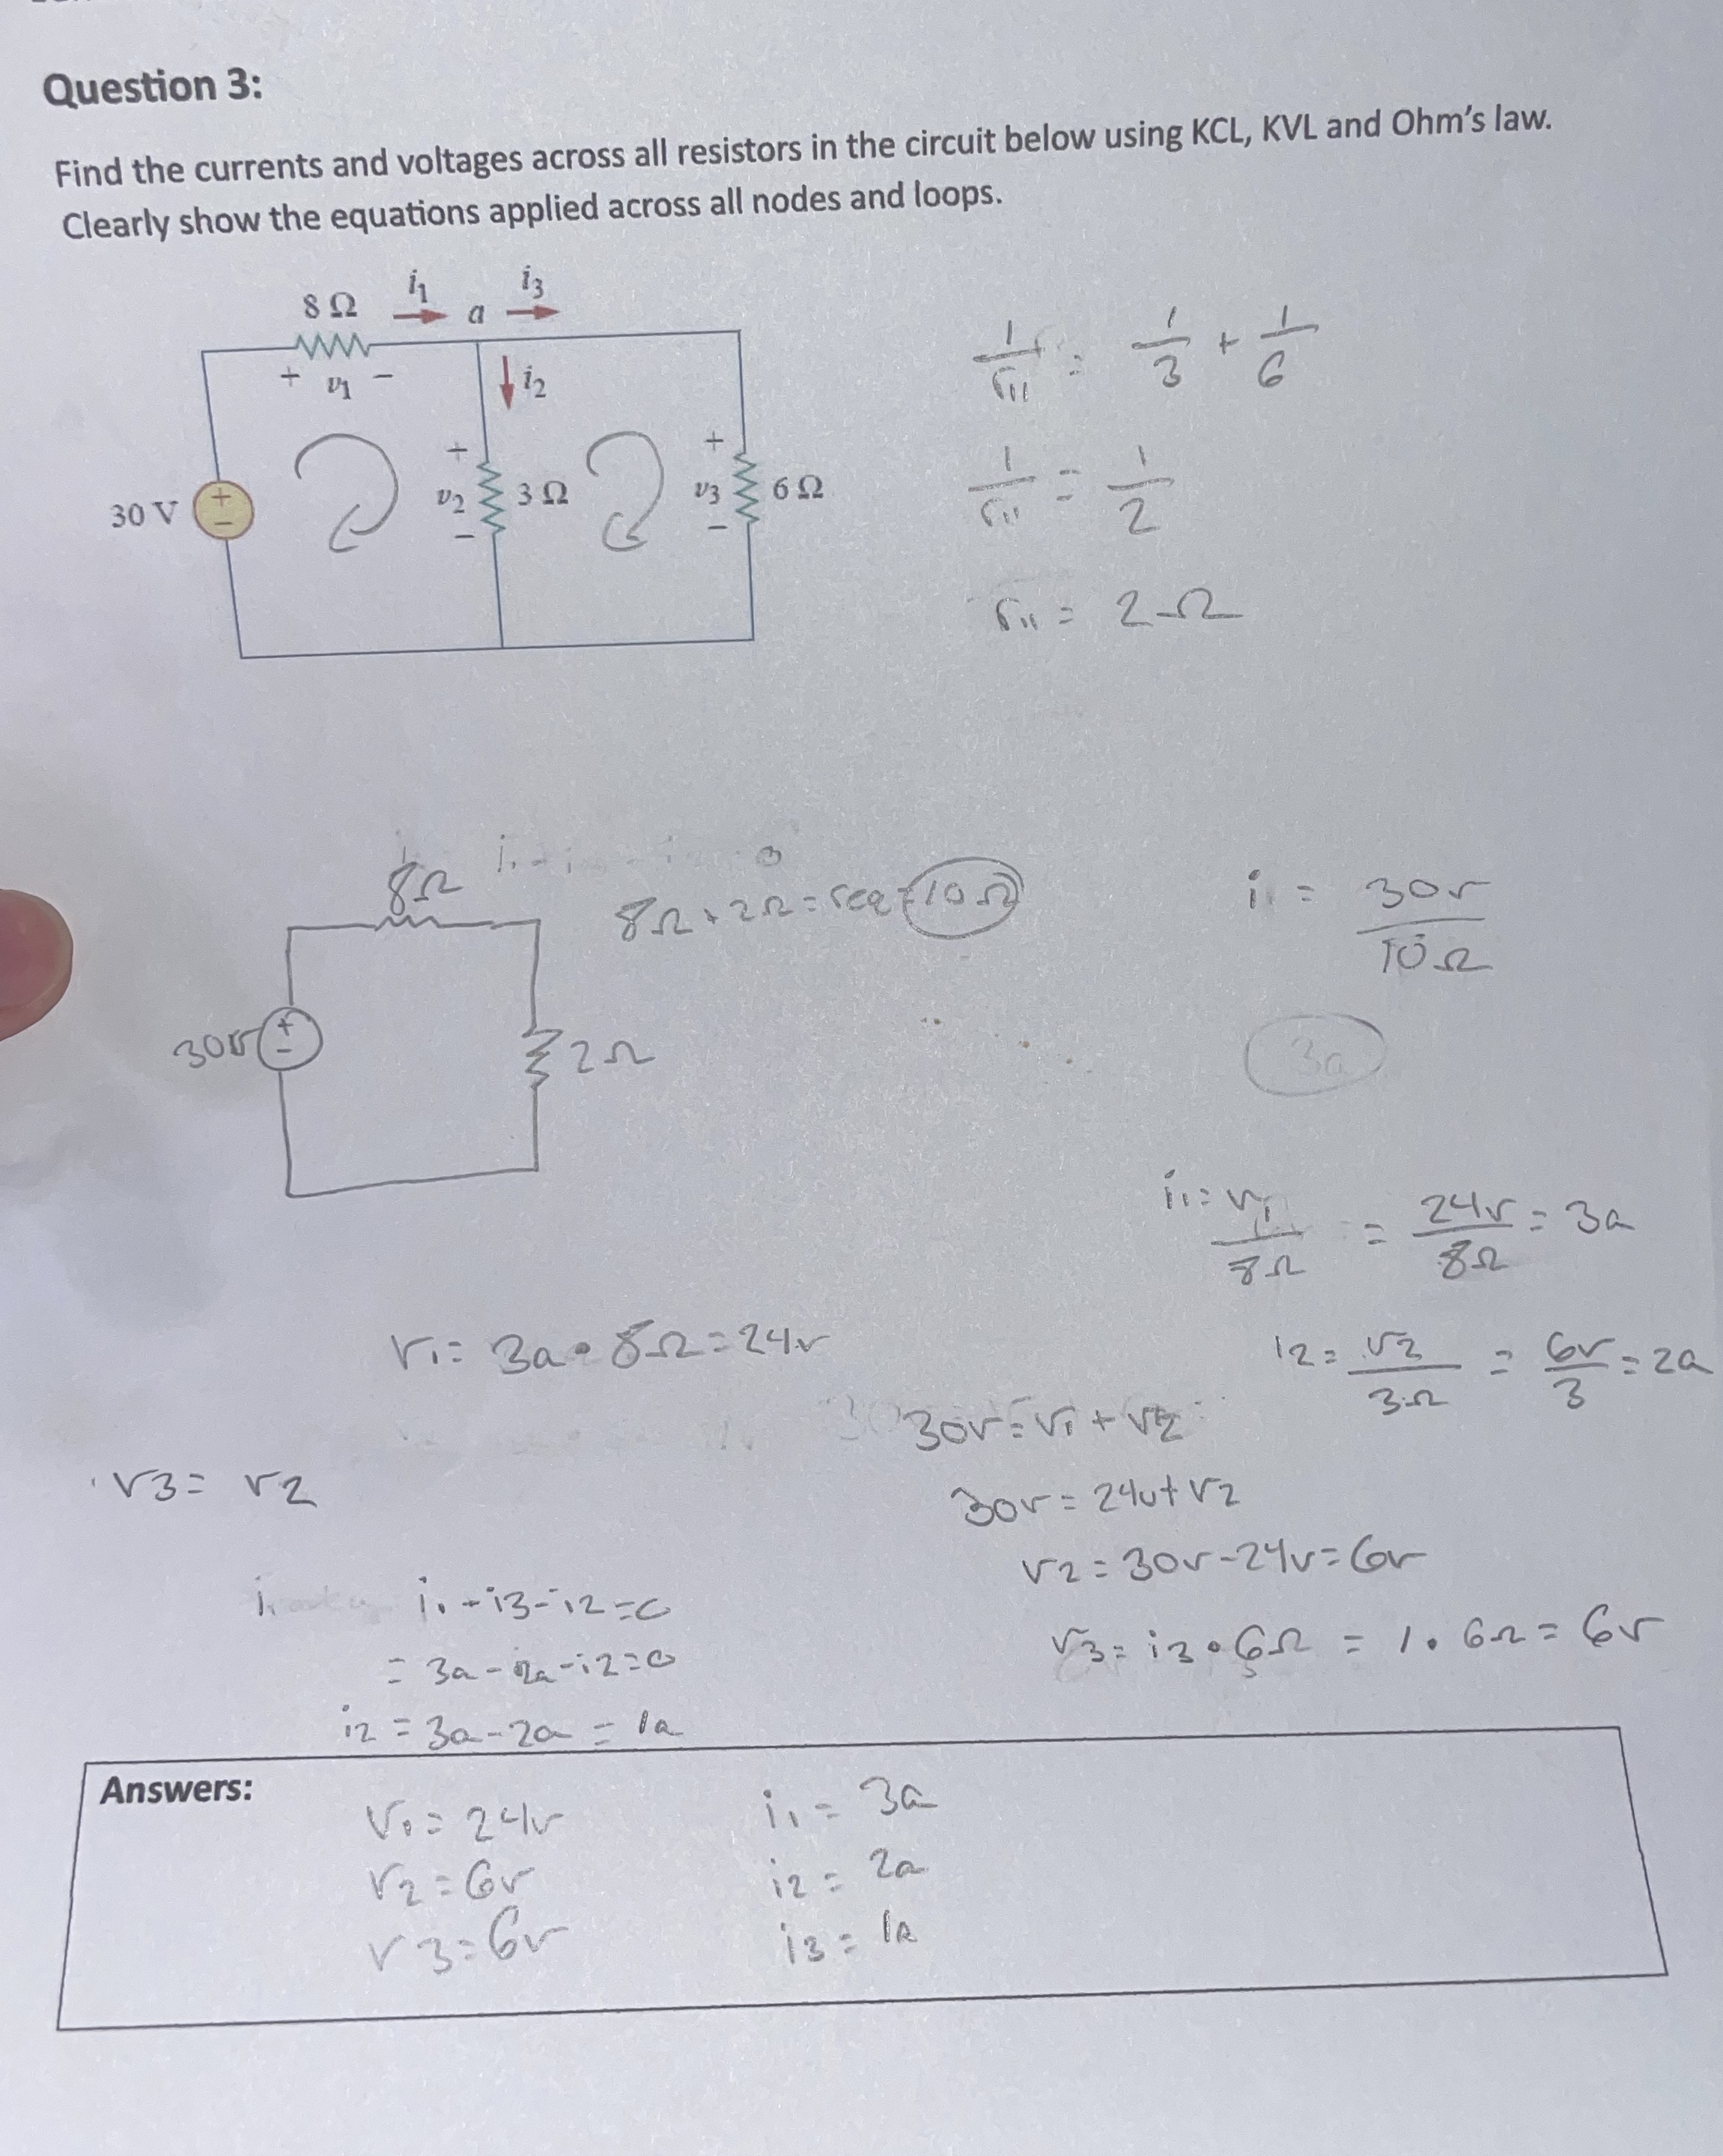 Question 3:
Find the currents and voltages across all resistors in the circuit below using KCL, KVL and Ohm's law.
Clearly show the equations applied across all nodes and loops.
8 Ω i1 a i3
+ v1 −
i2
30 V + −
+ v2 − 3 Ω
+ v3 − 6 Ω
1/r11 = 1/3 + 1/6
1/r11 = 1/2
r11 = 2Ω
8Ω
8Ω + 2Ω = req = 10Ω
30v + −
2Ω
i1 = 30v/10Ω
3a
i1 = v1/8Ω = 24v/8Ω = 3a
v1 = 3a • 8Ω = 24v
i2 = v2/3Ω = 6v/3 = 2a
30v = v1 + v2
v3 = v2
30v = 24v + v2
v2 = 30v - 24v = 6v
i1 - i3 - i2 = 0
v3 = i3 • 6Ω = 1 • 6Ω = 6v
= 3a - 2a - i2 = 0
i2 = 3a - 2a = 1a
Answers:
v1 = 24v i1 = 3a
v2 = 6v i2 = 2a
v3 = 6v i3 = 1a